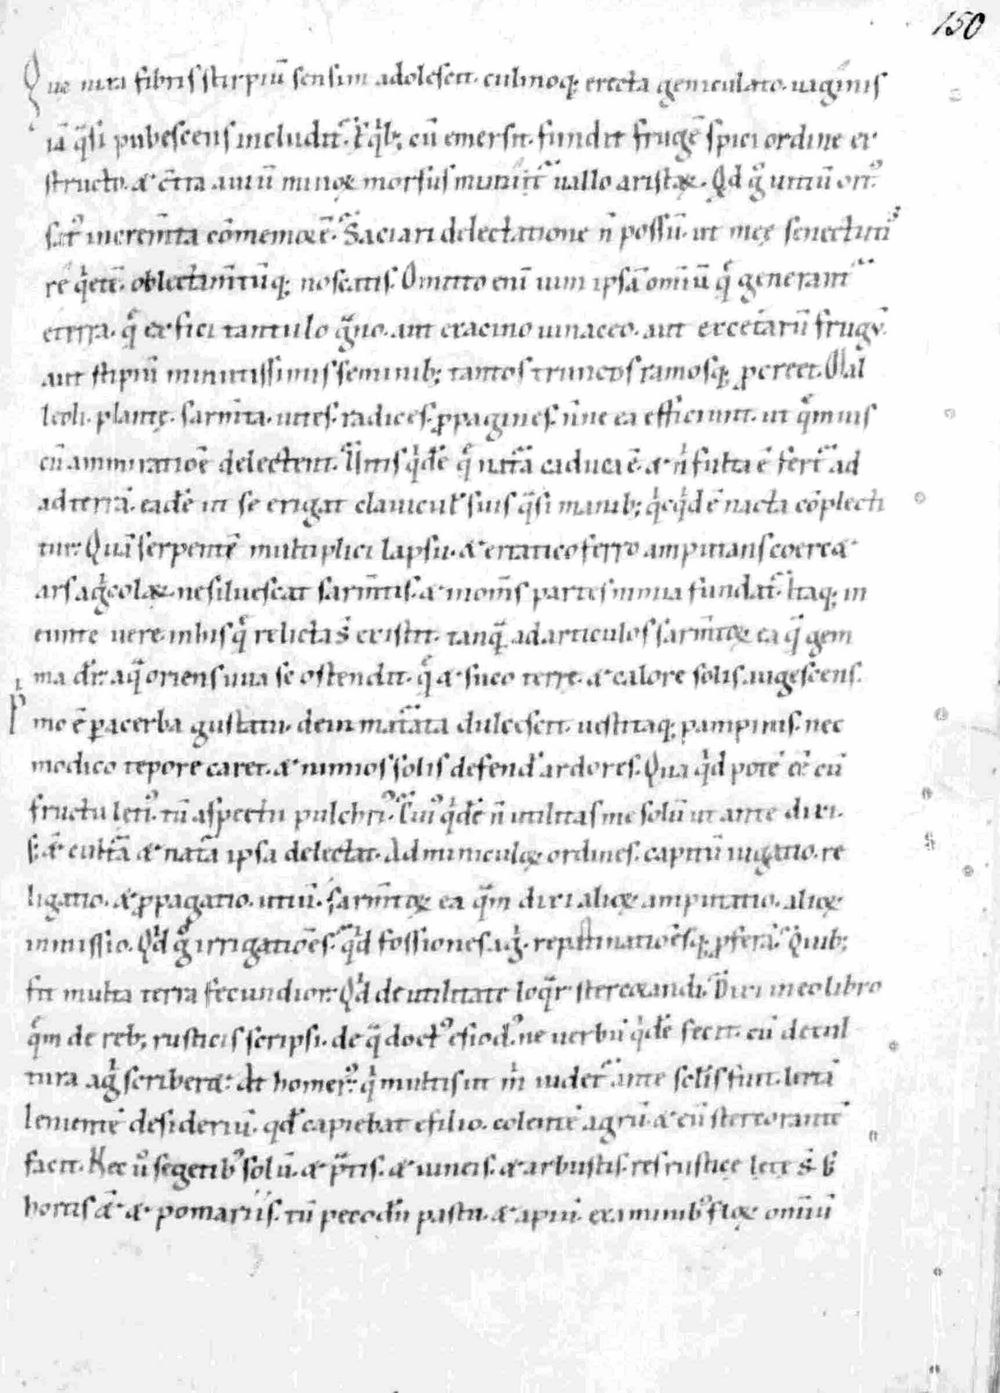 150
Que nixa fibris stirpiū sensim adolescit. culmoq; erecta geniculato. uaginis
iā q̄si pubescens includit̄. Ex q̄b; cū emersit. fundit frugē spici ordine ex
structo. & c̄tra auiū minoꝝ morsus munit̄ uallo aristaꝝ. Qd g̊ uitiū ort᷒.
sat᷒ increm̄ta cōmemorē. Saciari delectatione n̄ possū. ut meę senectuti᷒
re q̇etē. oblectam̄tūq; noscatis. Omitto eni uim ipsā omiū q̄ generant̄
e terra. q̄ ex fici tantulo g̊no. aut ex acino uinaceo. aut ex cetarū frugū.
aut stipiū minutissimis seminib; tantos truncos ramosq; ꝓcreet. Mal
leoli. plantę. sarm̄ta. uites. radices. ꝓpagines. n̄ne ea efficiunt. ut q̄muis
cū ammiratiōe delectent. Vitis q̇dē q̄ nat̄a caduca ē. & n̄ fulta ē fert̄ ad
ad terrā. eadē ut se erigat clauicul' suis q̄si manib; q̇cq̇d ē nacta cōplecti
tur. Quā serpentē multiplici lapsu. & erratico ferro amputans coercet
ars ag̊colaꝝ. ne siluescat sarm̄tis. & in om̄s partes nimia fundat̄. Itaq; in
eunte uere. in his q̄ relicta s̄ existit. tanq̄ ad articulos sarm̄toꝝ ea q̄ gem
ma dr̄. a q̄ oriens uua se ostendit. q̄ & suco terre. & calore solis. augescens.
Pimo ē ꝑacerba gustatu. dein mat̄ata dulcescit. uestitaq; pampinis. nec
modico tepore caret. & nimios solis defend' ardores. Qua q̇d potē eē cū
fructu leti᷒. tū aspectu pulchri᷒. Cui᷒ q̇dē n̄ utilitas me solū ut ante dixi.
s; & cult̄a & nat̄a ipsa delectat. Adminiculoꝝ ordines. capitū iugatio. re
ligatio. & ꝓpagatio. uitiū. sarm̄toꝝ ea q̄m dixi alioꝝ amputatio. alioꝝ
inmissio. Qd g̊ irrigatiōes. q̇d fossiones. ag̊. repastinatiōesq; ꝓferā. Quib;
fit multa terra fecundior. Qd de utilitate loq̄r stercorandi. Dixi in eo libro
q̄m de reb; rusticis scripsi. de q̄ doct᷒ esiod᷒. ne uerbū q̇dē fecit. cū de cul
tura ag̊ scriberet. At homer᷒. q̇ multis ut m̄ uidet̄ ante sc̄lis fuit. lertā
lenientē desideriū. qd' capiebat e filio. colentē agrū & eū stercorantē
facit. Nec ů segetib᷒ solū. & p̄tis. & uineis. & arbustis. res rusticę lete s̄. s;
hortis &̄. & pomariis. tū pecodū pastu. & apiū examinib᷒. floꝝ omniū